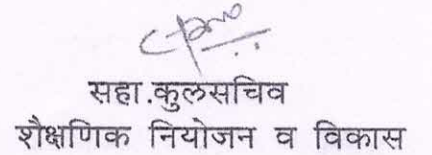 सहा.कुलसचिव
शैक्षणिक नियोजन व विकास